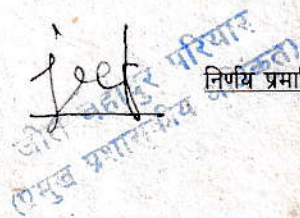 निर्णय प्रमा
जीत बहादुर परियार
(प्रमुख प्रशासकीय अधिकृत)